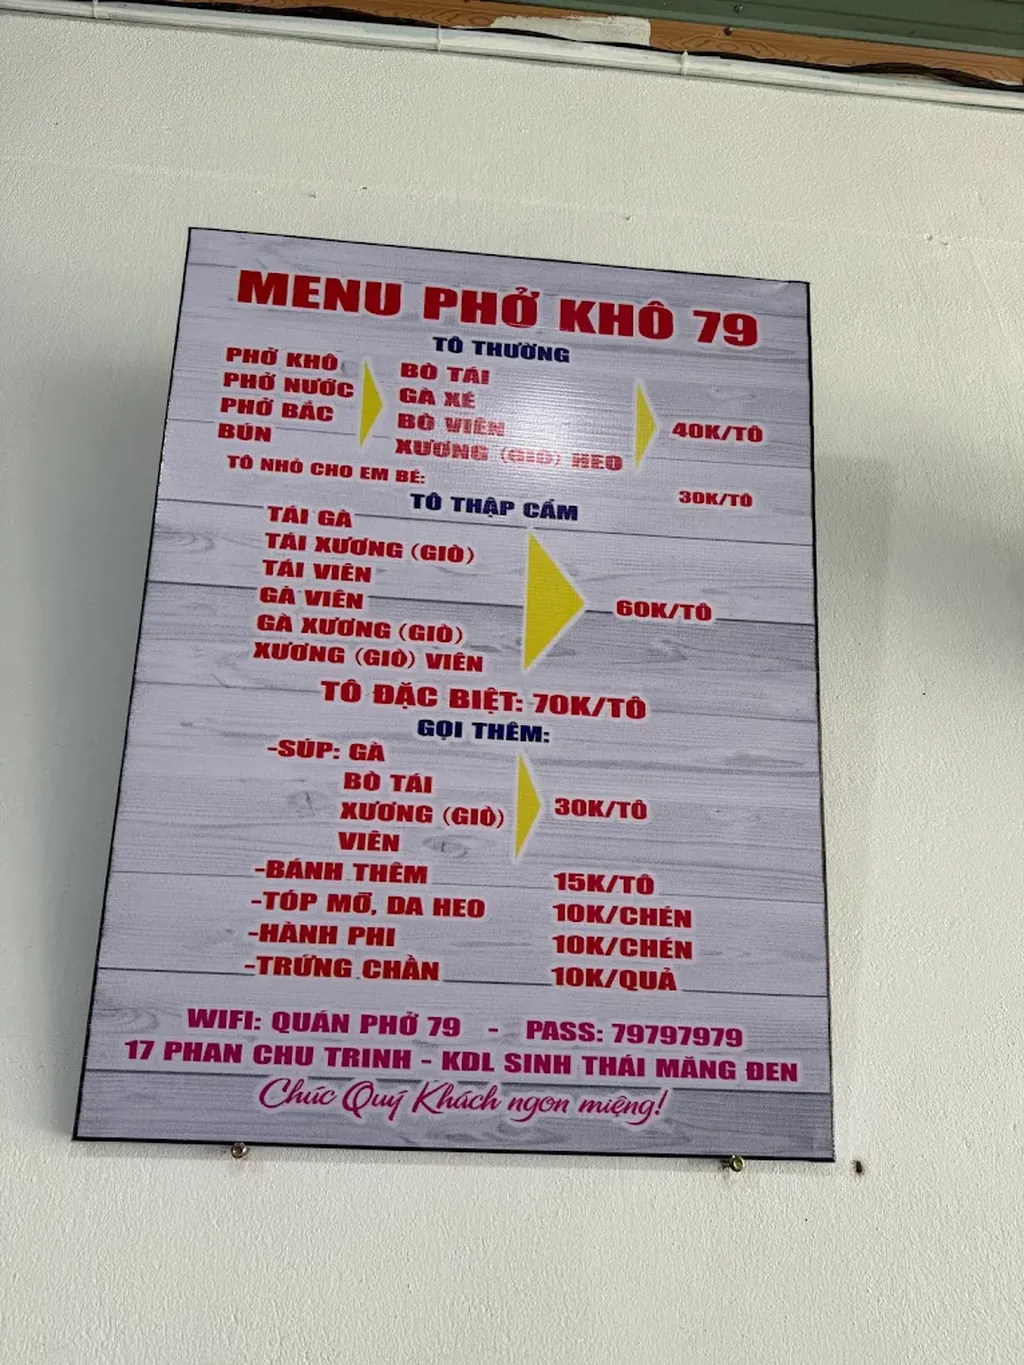 MENU PHỞ KHÔ 79
TÔ THƯỜNG
PHỞ KHÔ
PHỞ NƯỚC
PHỞ BẮC
BÚN
BÒ TÁI
GÀ XÉ
BÒ VIÊN
XƯƠNG (GIÒ) HEO
40K/TÔ
TÔ NHỎ CHO EM BÉ: 30K/TÔ
TÔ THẬP CẨM
TÁI GÀ
TÁI XƯƠNG (GIÒ)
TÁI VIÊN
GÀ VIÊN
GÀ XƯƠNG (GIÒ)
XƯƠNG (GIÒ) VIÊN
60K/TÔ
TÔ ĐẶC BIỆT: 70K/TÔ
GỌI THÊM:
-SÚP: GÀ
BÒ TÁI
XƯƠNG (GIÒ)
VIÊN
30K/TÔ
-BÁNH THÊM 15K/TÔ
-TÓP MỠ, DA HEO 10K/CHÉN
-HÀNH PHI 10K/CHÉN
-TRỨNG CHẦN 10K/QUẢ
WIFI: QUÁN PHỞ 79 - PASS: 79797979
17 PHAN CHU TRINH - KDL SINH THÁI MĂNG ĐEN
Chúc Quý Khách ngon miệng!